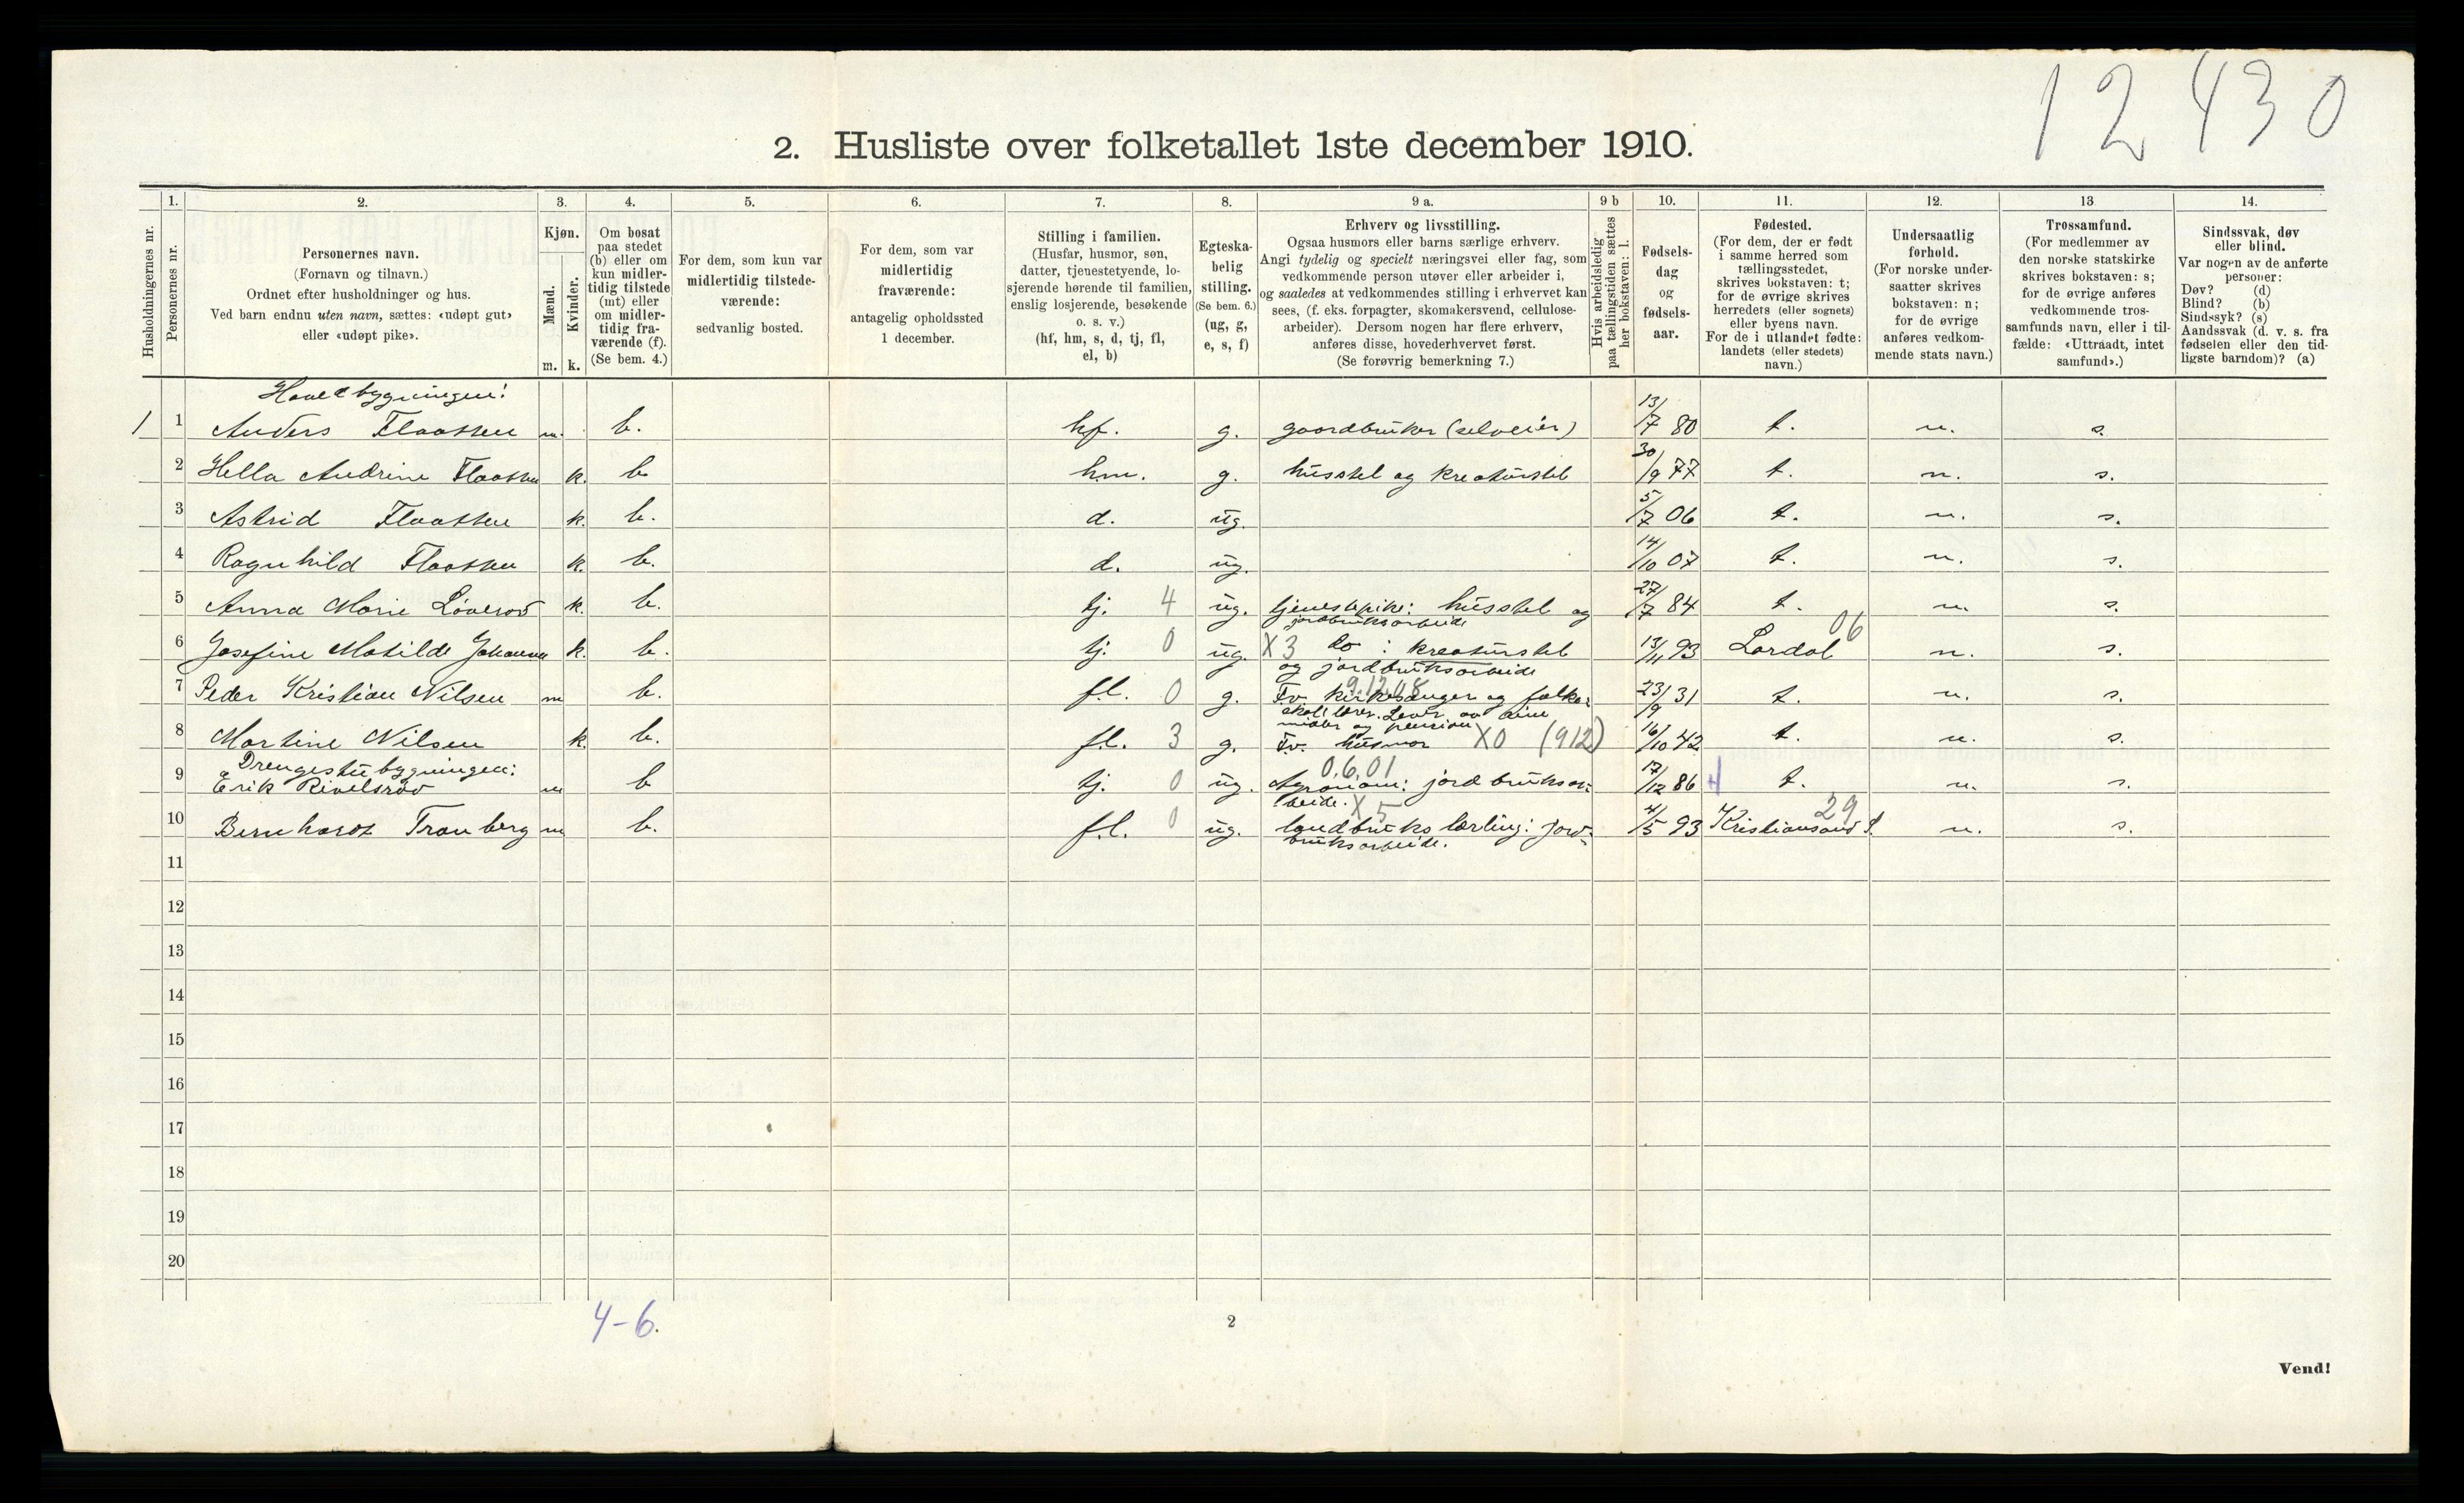 12 430
2. Husliste over folketallet 1ste december 1910.
Husholdningernes nr.
1. Personernes nr.
2. Personernes navn. (Fornavn og tilnavn.) Ordnet efter husholdninger og hus. Ved barn endnu uten navn, sættes: «udøpt gut» eller «udøpt pike».
3. Kjøn. Mænd. m. Kvinder. k.
4. Om bosat paa stedet (b) eller om kun midlertidig tilstede (mt) eller om midlertidig fraværende (f). (Se bem. 4.)
5. For dem, som kun var midlertidig tilstedeværende: sedvanlig bosted.
6. For dem, som var midlertidig fraværende: antagelig opholdssted 1 december.
7. Stilling i familien. (Husfar, husmor, søn, datter, tjenestetyende, losjerende hørende til familien, enslig losjerende, besøkende o. s. v.) (hf, hm, s, d, tj, fl, el, b)
8. Egteskabelig stilling. (Se bem. 6.) (ug, g, e, s, f)
9 a. Erhverv og livsstilling. Ogsaa husmors eller barns særlige erhverv. Angi tydelig og specielt næringsvei eller fag, som vedkommende person utøver eller arbeider i, og saaledes at vedkommendes stilling i erhvervet kan sees, (f. eks. forpagter, skomakersvend, cellulosearbeider). Dersom nogen har flere erhverv, anføres disse, hovederhvervet først. (Se forøvrig bemerkning 7.)
9 b Hvis arbeidsledig paa tællingstiden sættes her bokstaven: l.
10. Fødselsdag og fødselsaar.
11. Fødested. (For dem, der er født i samme herred som tællingsstedet, skrives bokstaven: t; for de øvrige skrives herredets (eller sognets) eller byens navn. For de i utlandet fødte: landets (eller stedets) navn.)
12. Undersaatlig forhold. (For norske undersaatter skrives bokstaven: n; for de øvrige anføres vedkommende stats navn.)
13 Trossamfund. (For medlemmer av den norske statskirke skrives bokstaven: s; for de øvrige anføres vedkommende trossamfunds navn, eller i tilfælde: «Uttraadt, intet samfund».)
14. Sindssvak, døv eller blind. Var nogen av de anførte personer: Døv? (d) Blind? (b) Sindssyk? (s) Aandssvak (d. v. s. fra fødselen eller den tidligste barndom)? (a)
Hovedbygningen:
1 1 Anders Flaatten m. b. hf. g. gaardbruker (selveier) 13/7 80 t. n. s.
2 Hella Andrine Flaatten k. b hm. g. husstel og kreaturstel 30/9 77 t. n. s.
3 Astrid Flaatten k. b. d. ug. 5/7 06 t. n. s.
4 Ragnhild Flaatten k. b. d. ug. 14/10 07 t. n. s.
5 Anna Marie Løverød k. b. tj. 4 ug. tjenestepike: husstel og jordbruksarbeide 27/7 84 t. n. s.
6 Josefine Matilde Johansen k. b. tj. 0 ug. X3 do : kreaturstel og jordbruksarbeide 13/11 93 Lardal 06 n. s.
7 Peder Kristian Nilsen m b. fl. 0 g. Fv. kirkesanger og folkeskolelærer. Lever av sine midler og pension 9.12.08 23/9 31 t. n. s.
8 Martine Nilsen k. b. fl. 3 g. Fv. husmor X0 (912) 16/10 42 t. n. s.
Drengestubygningen:
9 Erik Rivelsrød m b tj. 0 ug. Agronom: jordbruksarbeide. 0.6.01 X5 17/12 86 t. n. s.
10 Bernhardt Tranberg m b. fl. 0 ug. landbrukslærling: jordbruksarbeide. 4/5 93 Kristiansand S. 29 n. s.
11
12
13
14
15
16
17
18
19
20
4-6.
2
Vend!